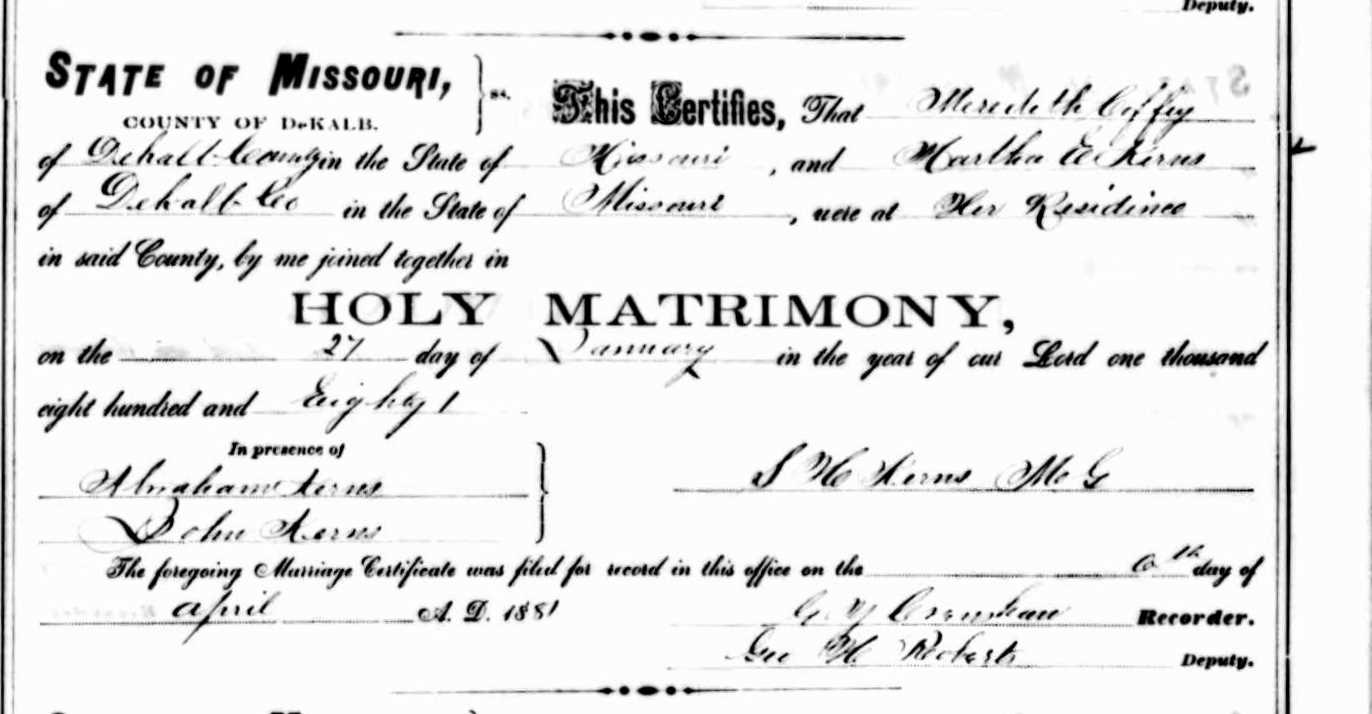 Deputy.
STATE OF MISSOURI, } ss. This Certifies, That Meredith Coffey
COUNTY OF DeKALB.
of Dekalb County in the State of Missouri, and Martha E Kerns
of Dekalb Co in the State of Missouri, were at Her Residince
in said County, by me joined together in
HOLY MATRIMONY,
on the 27 day of January in the year of our Lord one thousand
eight hundred and Eighty 1
In presence of
Abraham Kerns } S H Kerns M G
John Kerns
The foregoing Marriage Certificate was filed for record in this office on the 6th day of
April A. D. 1881 G Recorder.
Geo H Roberts Deputy.